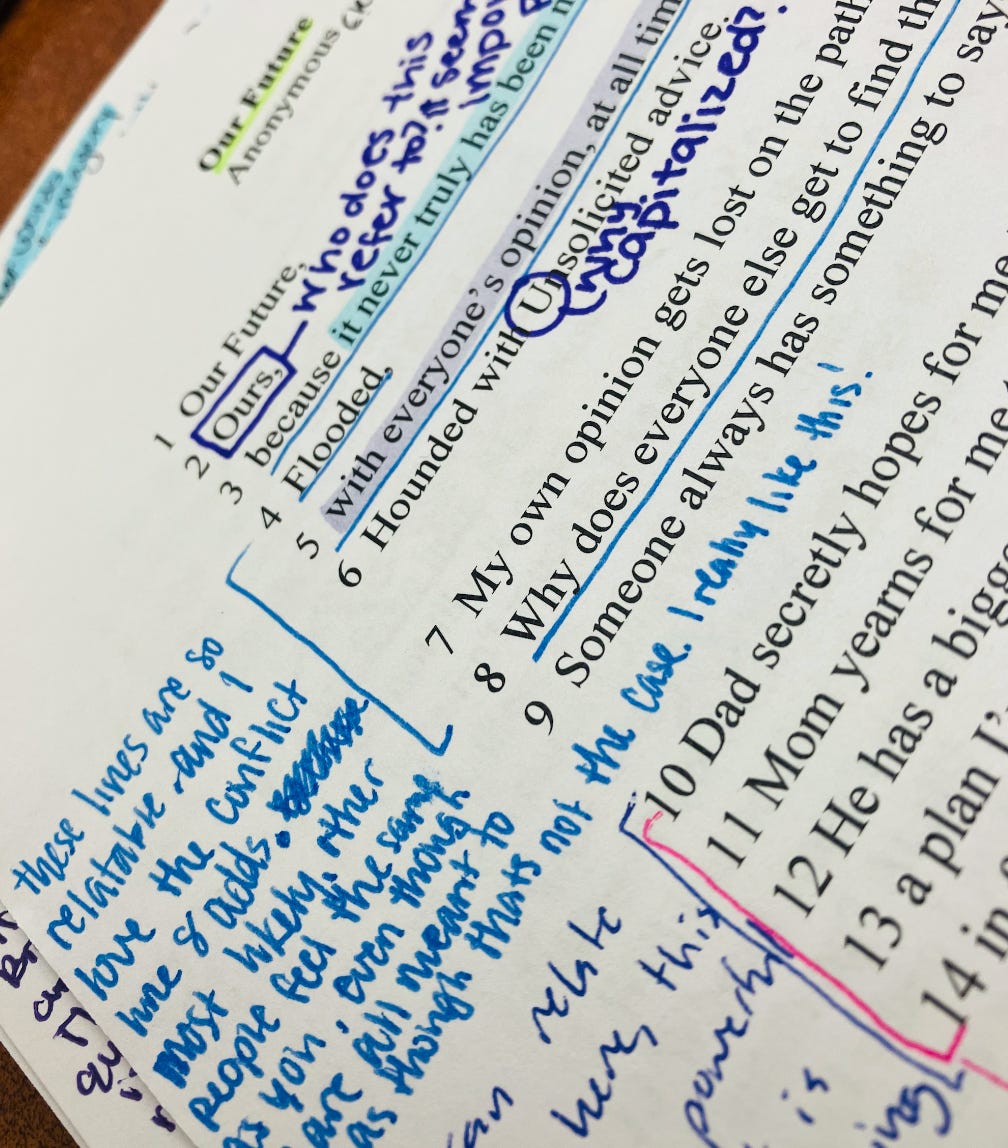 Our Future
Anonymous
who does this
refer to? It seem
1 Our Future,
2 Ours,
3 because it never truly has been
4 Flooded,
5 with everyone's opinion, at all tim
6 Hounded with Unsolicited advice.
why
capitalized?
7 My own opinion gets lost on the path
8 Why does everyone else get to find th
9 Someone always has something to say
10 Dad secretly hopes for me
11 Mom yearns for me
12 He has a bigg
13 a plan I'
14 in
these lines are so
relatable and I
love the conflict
line 8 adds.
most likely, other
people feel the same
as you, even though
are all meant to
as though thats not the case. I really like this!
can relate
here, this
powerful
is
ing